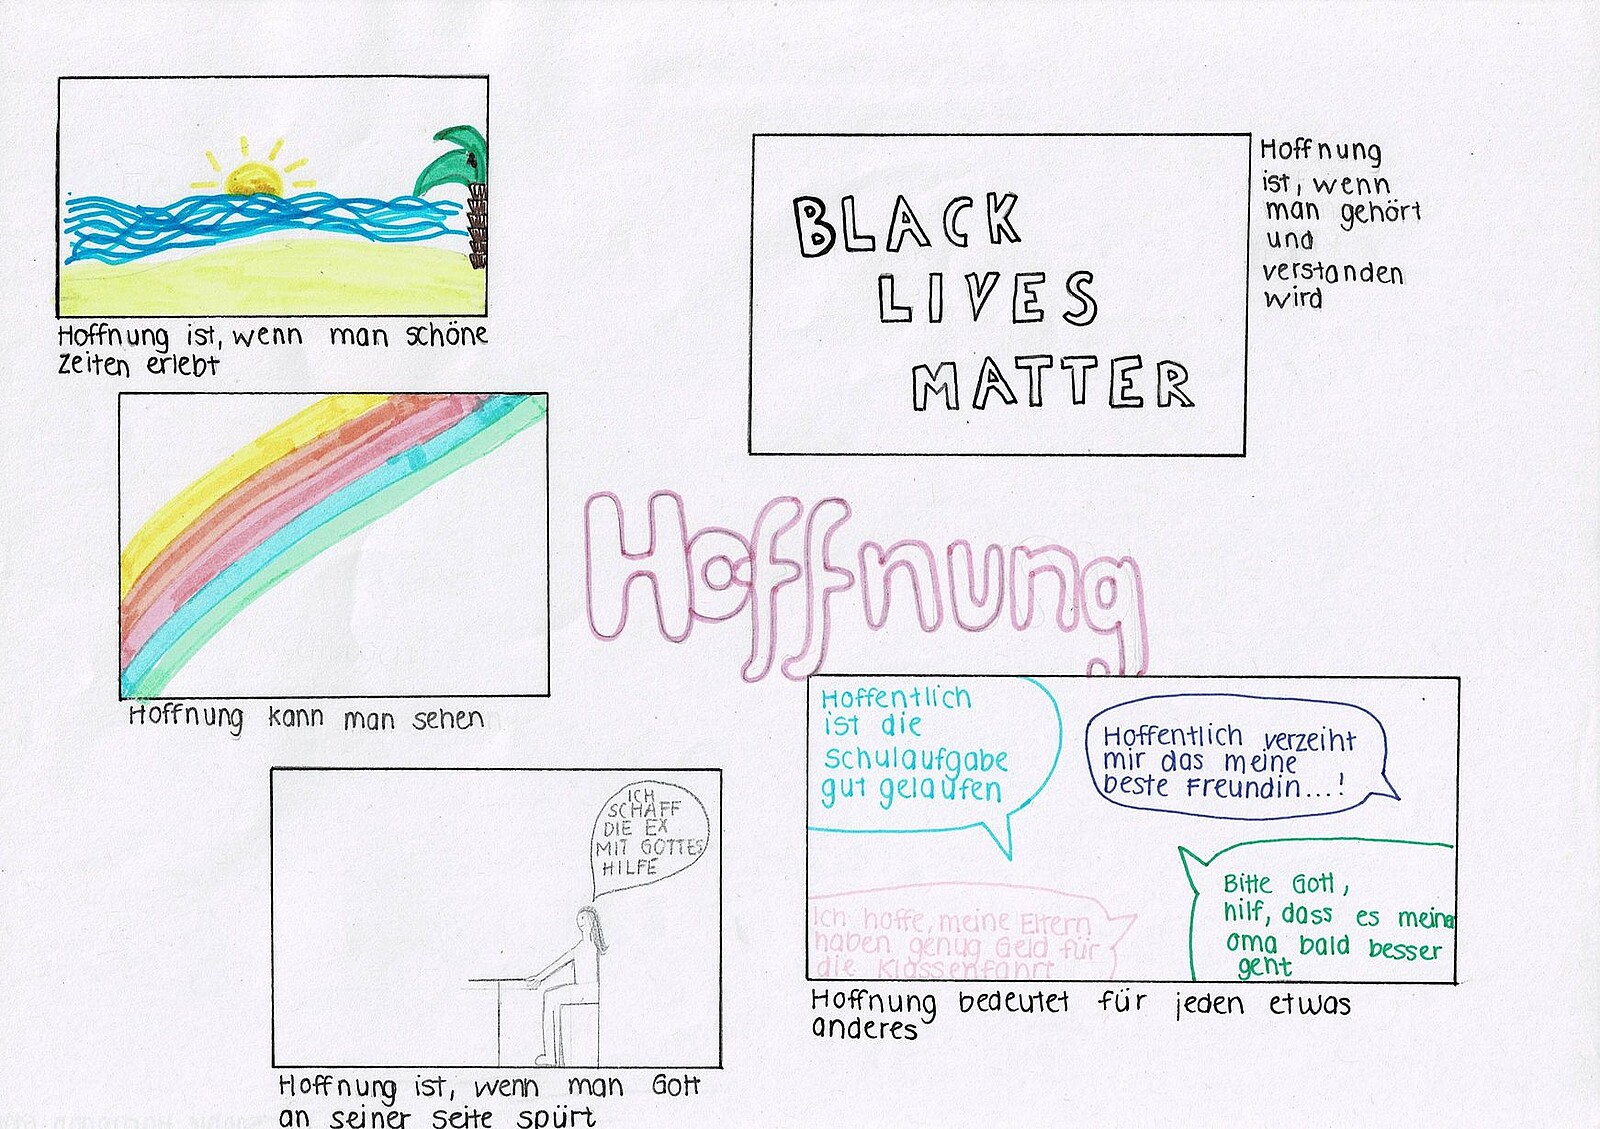 Hoffnung ist, wenn man schöne
Zeiten erlebt
BLACK
LIVES
MATTER
Hoffnung
ist, wenn
man gehört
und
verstanden
wird
Hoffnung kann man sehen
Hoffnung
ICH
SCHAFF
DIE EX
MIT GOTTES
HILFE
Hoffnung ist, wenn man Gott
an seiner Seite spürt
Hoffentlich
ist die
Schulaufgabe
gut gelaufen
Hoffentlich verzeiht
mir das meine
beste Freundin...!
Ich hoffe, meine Eltern
haben genug Geld für
die Klassenfahrt
Bitte Gott,
hilf, dass es meina
oma bald besser
geht
Hoffnung bedeutet für jeden etwas
anderes